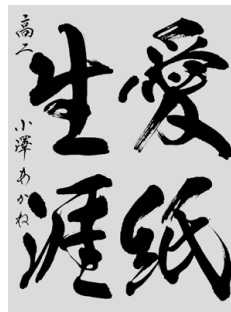 愛紙
生涯
高二 小澤あかね